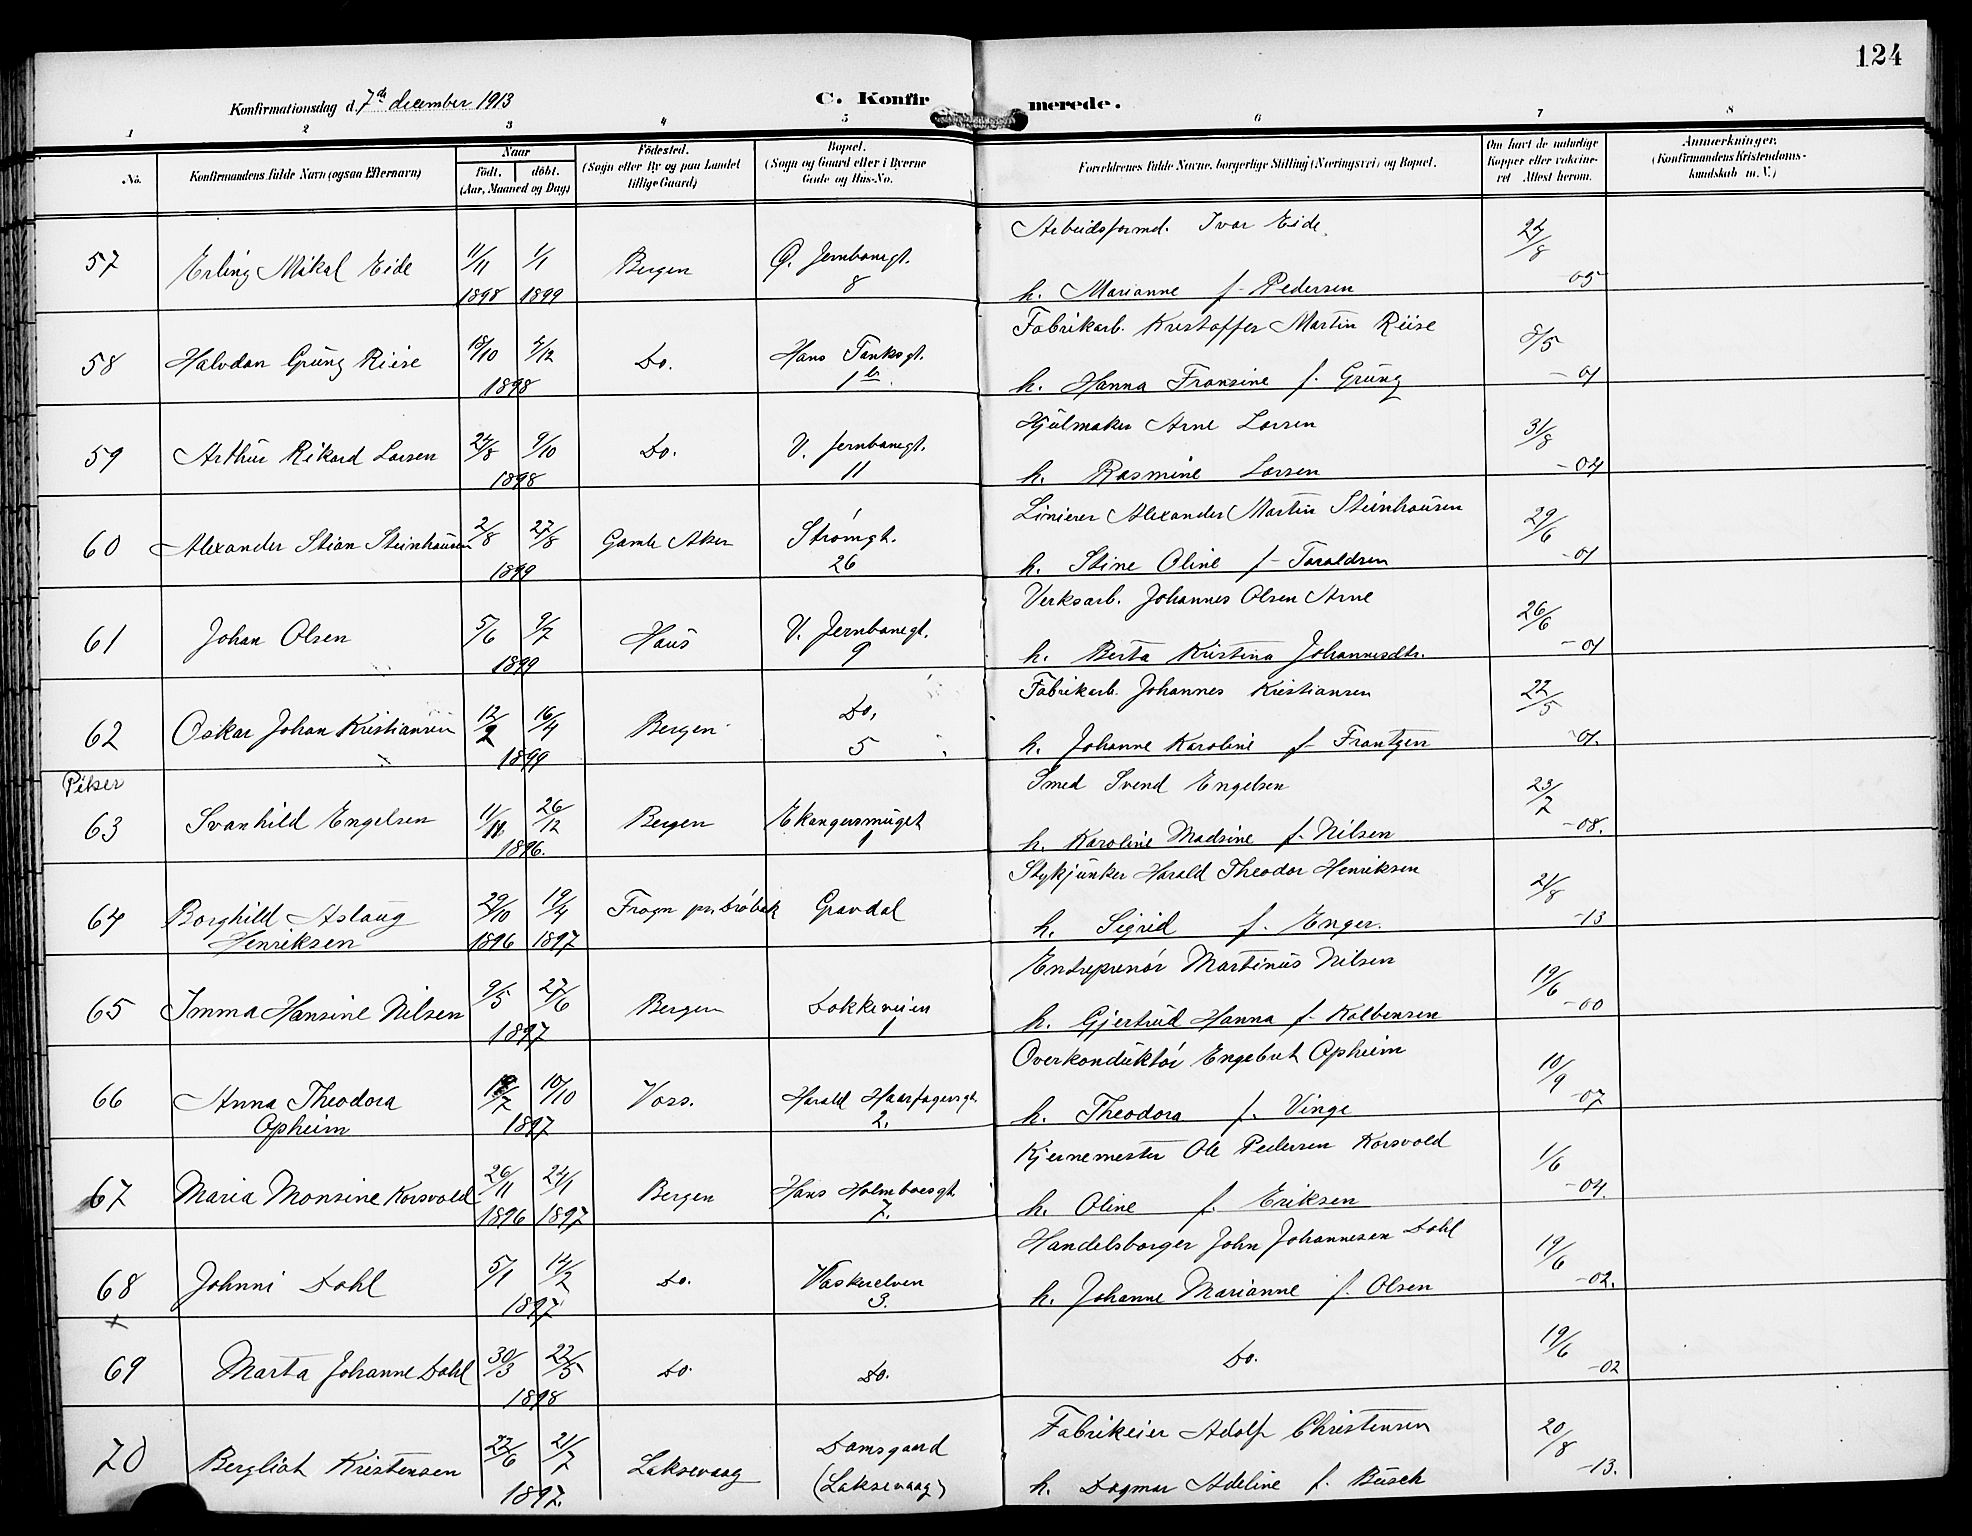 124
Konfirmationsdag d. 7de december 1913
C. Konfirmerede.
1 2 3 4 5 6 7 8
No. Konfirmandens fulde Navn (ogsaa Efternavn) Naar født. døbt. (Aar, Maaned og Dag) Fødested. (Sogn eller By og paa Landet tillige Gaard) Bopæl. (Sogn og Gaard eller i Byerne Gade og Hus-No. Forældrenes fulde Navne, borgerlige Stilling (Næringsvei) og Bopæl. Om havt de naturlige Kopper eller vakcineret Attest herom. Anmerkninger. (Konfirmandens Kristendomskundskab m. V.)
57 Erling Mikal Eide 11/11 1898 1/1 1899 Bergen Ø. Jernbanegt. 8 Arbeidsformd. Ivar Eide
h. Marianne f. Pedersen 24/8 -05
58 Halvdan Grung Riise 18/10 4/12 1898 Do. Hans Tanksgt. 1 b. Fabrikarb. Kristoffer Martin Riise
h. Hanna Fransine f. Grung 8/5 -01
59 Arthur Rikard Larsen 24/8 9/10 1898 Do. V. Jernbanegt. 11 Hjulmaker Arne Larsen
h. Rasmine Larsen 31/8 -04
60 Alexander Stian Steinhausen 2/8 27/8 1899 Gamle Aker Strømgt. 26 Linierer Alexander Martin Steinhausen
h. Stine Oline f. Taraldsen 29/6 -01
61 Johan Olsen 5/6 9/7 1899 Haus V. Jernbanegt. 9 Verksarb. Johannes Olsen Arne
h. Berta Kristina Johannesdtr. 26/6 -01
62 Oskar Johan Kristiansen 12/2 16/4 1899 Bergen Do. 5 Fabrikarb. Johannes Kristiansen
h. Johanne Karoline f. Frantzen 22/5 -01.
Piker
63 Svanhild Engelsen 11/11 26/12 1896. Bergen Ekangersmuget 1 Smed Svend Engelsen
h. Karoline Madsine f. Nilsen 23/7 -08.
64 Borghild Aslaug Henriksen 29/10 1896 19/4 1897 Frogn pr. Drøbak Gravdal Stykjunker Harald Theodor Henriksen
h. Sigrid f. Enger. 21/8 -13
65 Imma Hansine Nilsen 9/5 27/6 1897 Bergen Dokkeveien 1 Entreprenør Martinus Nilsen
h. Gjertrud Hanna f. Kolbensen 19/6 -00
66 Anna Theodora Opheim 18/7 10/10 1897 Voss. Harald Haarfagersgt. 2. Overkonduktør Engebret Opheim
h. Theodora f. Vinge 10/9 -07
67 Maria Monsine Korsvold 26/11 1896 24/1 1897 Bergen Hans Holmboesgt. 7. Kjernemester Ole Pedersen Korsvold
h. Oline f. Eriksen 1/6 -04.
68 Johnni Dahl 5/1 14/2 1897 Do. Vaskerelven 3. Handelsborger John Johannesen Dahl
h. Johanne Marianne f. Olsen 19/6 -02.
x
69 Marta Johanne Dahl 30/3 22/5 1898 Do. Do. Do. 19/6 -02
70 Bergliot Kristensen 22/6 21/7 1897. Laksevaag Damsgaard (Laksevaag) Fabrikeier Adolf Christensen
h. Dagmar Adeline f. Busch 20/8 -13.